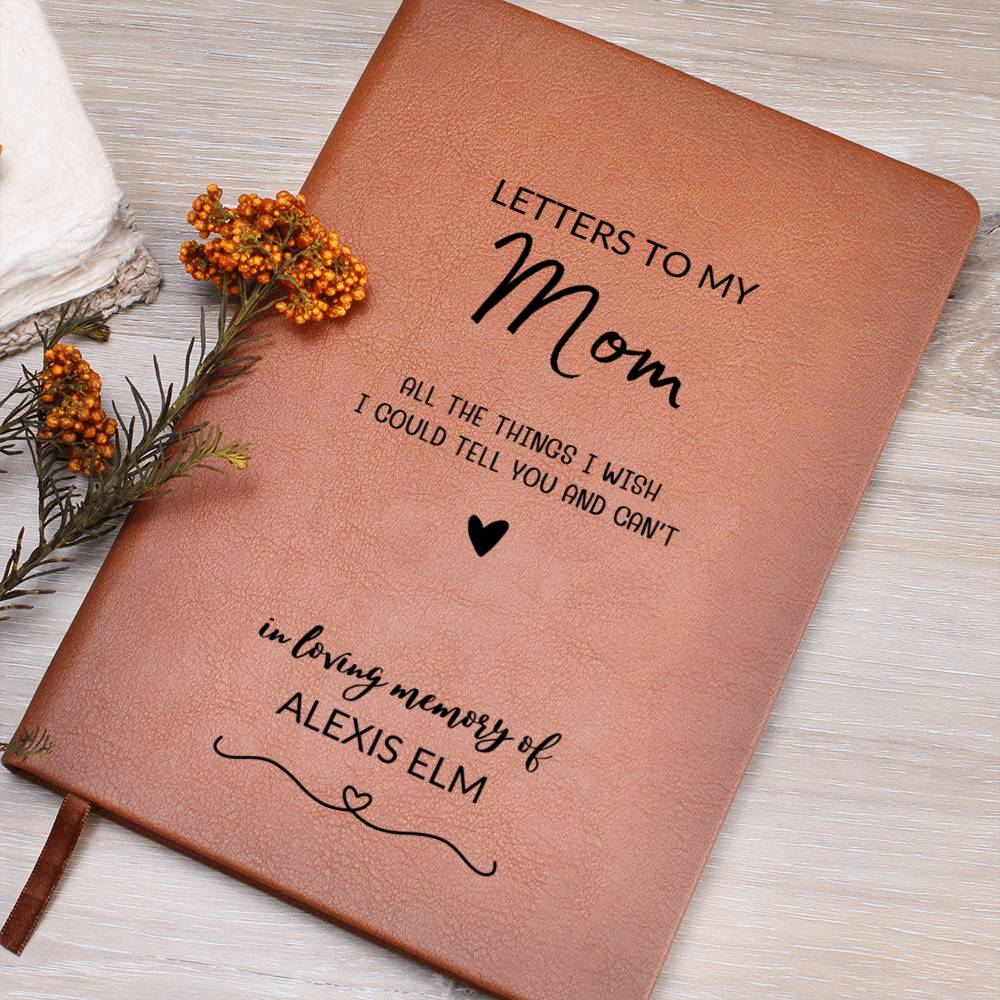 LETTERS TO MY
Mom
ALL THE THINGS I WISH
I COULD TELL YOU AND CAN'T
in loving memory of
ALEXIS ELM